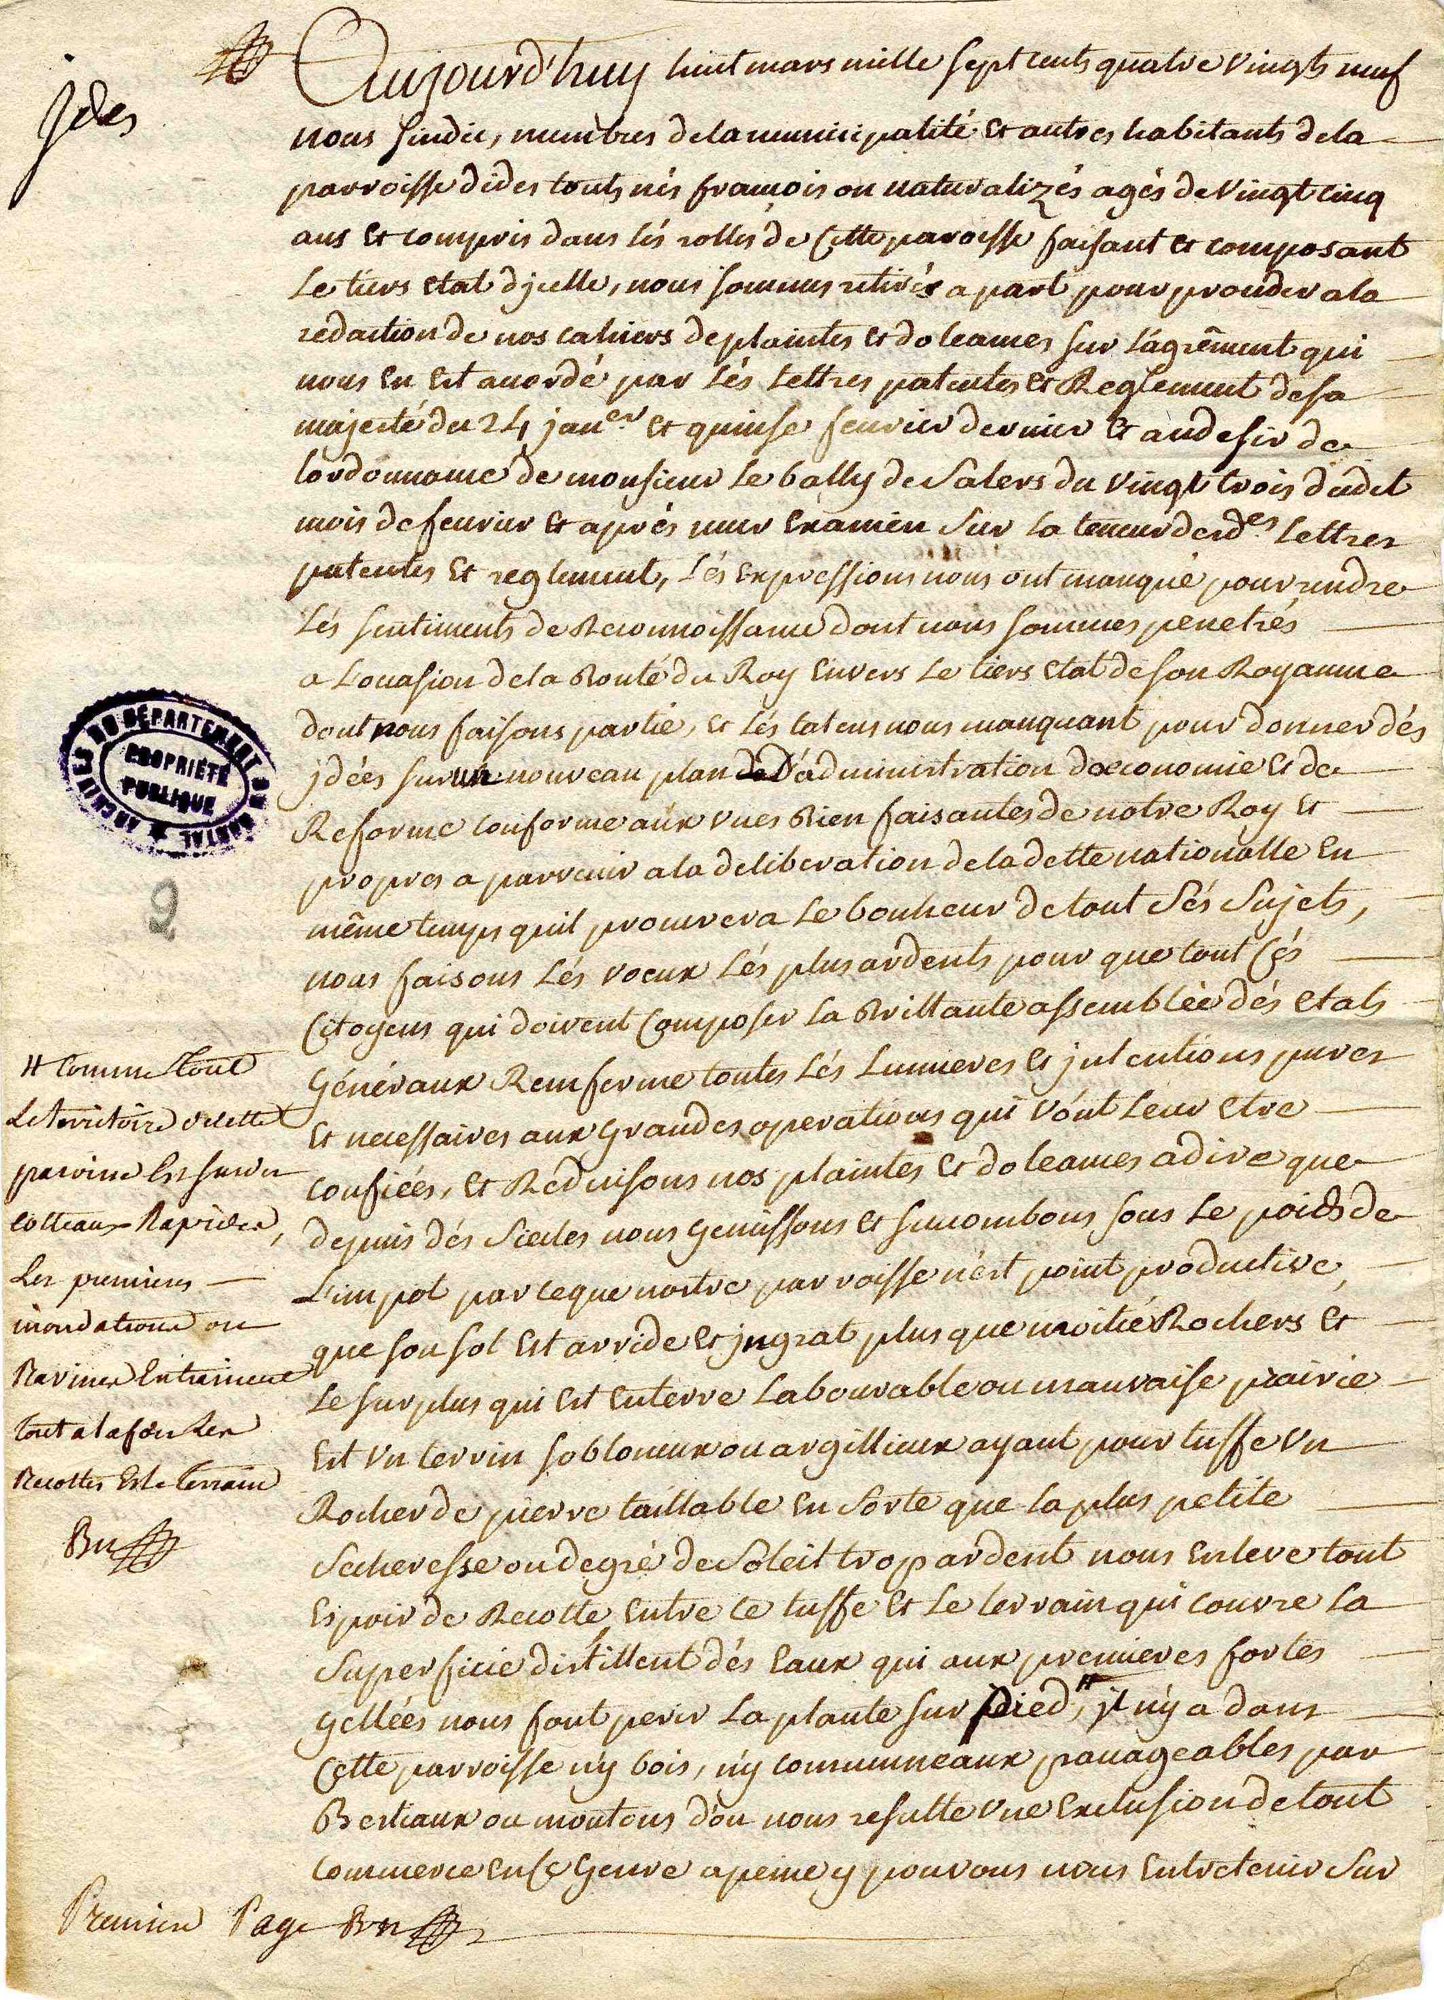 jdes
Aujourd'huy huit mars mille sept cents quatre vingts neuf
nous sindic, membres de la municipalité et autres habitants de la
parroisse dides touts nés francois ou naturalizés agés de vingt cinq
ans et compris dans lés rolles de cette paroisse faisant et composant
le tiers etat djcelle, nous sommes retirés a part pour proceder a la
redaction de nos cahiers de plaintes et doleances sur lágrêment qui
nous en est accordé par lés lettres patentes et Reglement de sa
majesté du 24 janer et quinse fevrier dernier et au desir de
lordonnance de monsieur le bally de Salers du vingt trois dudit
mois de fevrier et aprés mur examen sur la teneur desdes lettres
patentes et reglement, lés expressions nous ont manqué pour rendre
lés sentiments de Reconnoissance dont nous sommes penetrés
a loccasion de la Bonté du Roy envers le tiers etat de son Royaume
dont nous faisons partie, et les talens nous manquant pour donner dés
jdées sur un nouveau plan de d'administration doeconomie et de
Reforme conforme aux vues Bien faisantes de notre Roy et
propres a parvenir a la deliberation de la dette nationalle en
même temps quil procurera le bonheur de tout sés sujets,
nous faisons lés voeux lés plus ardents pour que tout cés
citoyens qui doivent composer la Brillante assemblée dés etats
Généraux Renferme toutes lés lumieres et jntentions pures
et necessaires aux grandes operations qui vont leur etre
confiées, et Reduisons nos plaintes et doleances a dire que
depuis dés siecles nous gemissons et succombons sous le poids de
l'impot parceque nostre parroisse nést point productive,
que son sol est arride et jngrat plus que moitié Rochers et
le surplus qui est en terre labourable ou mauvaise prairie
est un terrin sobloneux ou argillieux ayant pour tuffe un
Rocher de pierre taillable en sorte que la plus petite
secheresse ou degré de soleil trop ardent nous enleve tout
espoir de Recolte, entre ce tuffe et le terrain qui couvre la
superficie distillent dés eaux qui aux premieres fortes
gellées nous font perir la plante sur pied, # jl n'y a dans
cette parroisse n'y bois, n'y communneaux pacageables par
Bestiaux ou moutons dóu nous resulte une exclusion de tout
commerce en ce genre a peine y pouvons nous entretenir sur
# Comme tout
le territoire de cette
paroisse est sur des
cotteaux Rapides,
les premieres
inondations ou
Ravines entrainent
tout a la fois les
Recoltes et le terrain
Bn
ARCHIVES DU DÉPARTEMENT DU CANTAL
PROPRIÉTÉ
PUBLIQUE
2
Premiere Page Bn